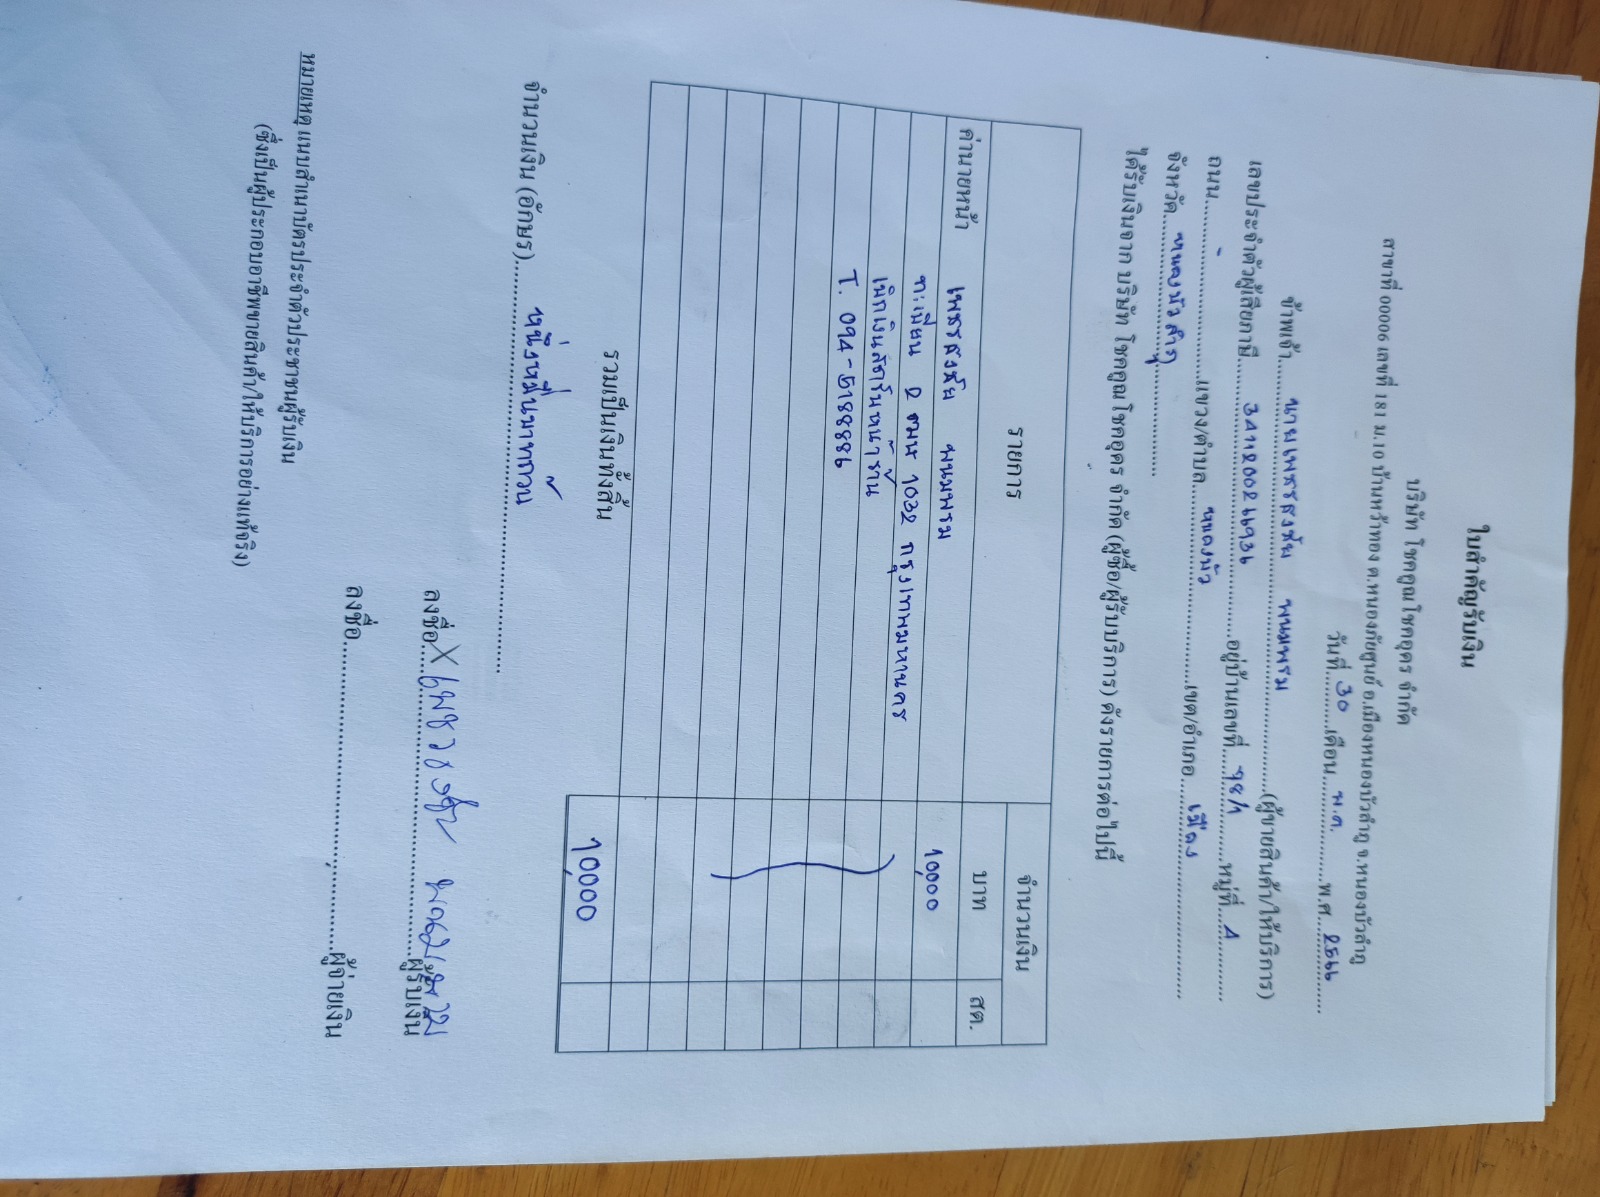 ใบสำคัญรับเงิน
บริษัท โชคคูณโชคอุดร จำกัด
สาขาที่ 00006 เลขที่ 181 ม.10 บ้านทร้าทอง ต.หนองภัยศูนย์ อ.เมืองหนองบัวลำภู จ.หนองบัวลำภู
วันที่ 30 เดือน พ.ค. พ.ศ. 2566
ข้าพเจ้า นายเพชรสงชัย พานพรม (ผู้ขายสินค้า/ให้บริการ)
เลขประจำตัวผู้เสียภาษี อยู่บ้านเลขที่ 78/1 หมู่ที่ 4
ถนน - แขวง/ตำบล หนองบัว เขต/อำเภอ เมือง
จังหวัด หนองบัวลำภู
ได้รับเงินจาก บริษัท โชคคูณโชคอุดร จำกัด (ผู้ซื้อ/ผู้รับบริการ) ดังรายการต่อไปนี้
รายการ จำนวนเงิน
บาท สต.
ค่านายหน้า เพชรสงชัย พานพรม
ทะเบียน 2 ฒฒ 1032 กรุงเทพมหานคร 10,000
เบิกเงินสดในหน้าร้าน
T. 094-5188886
รวมเป็นเงินทั้งสิ้น 10,000
จำนวนเงิน (อักษร) หนึ่งหมื่นบาทถ้วน
ลงชื่อ X ผู้รับเงิน
ลงชื่อ ผู้จ่ายเงิน
หมายเหตุ แนบสำเนาบัตรประจำตัวประชาชนผู้รับเงิน
(ซึ่งเป็นผู้ประกอบอาชีพขายสินค้า/ให้บริการอย่างแท้จริง)